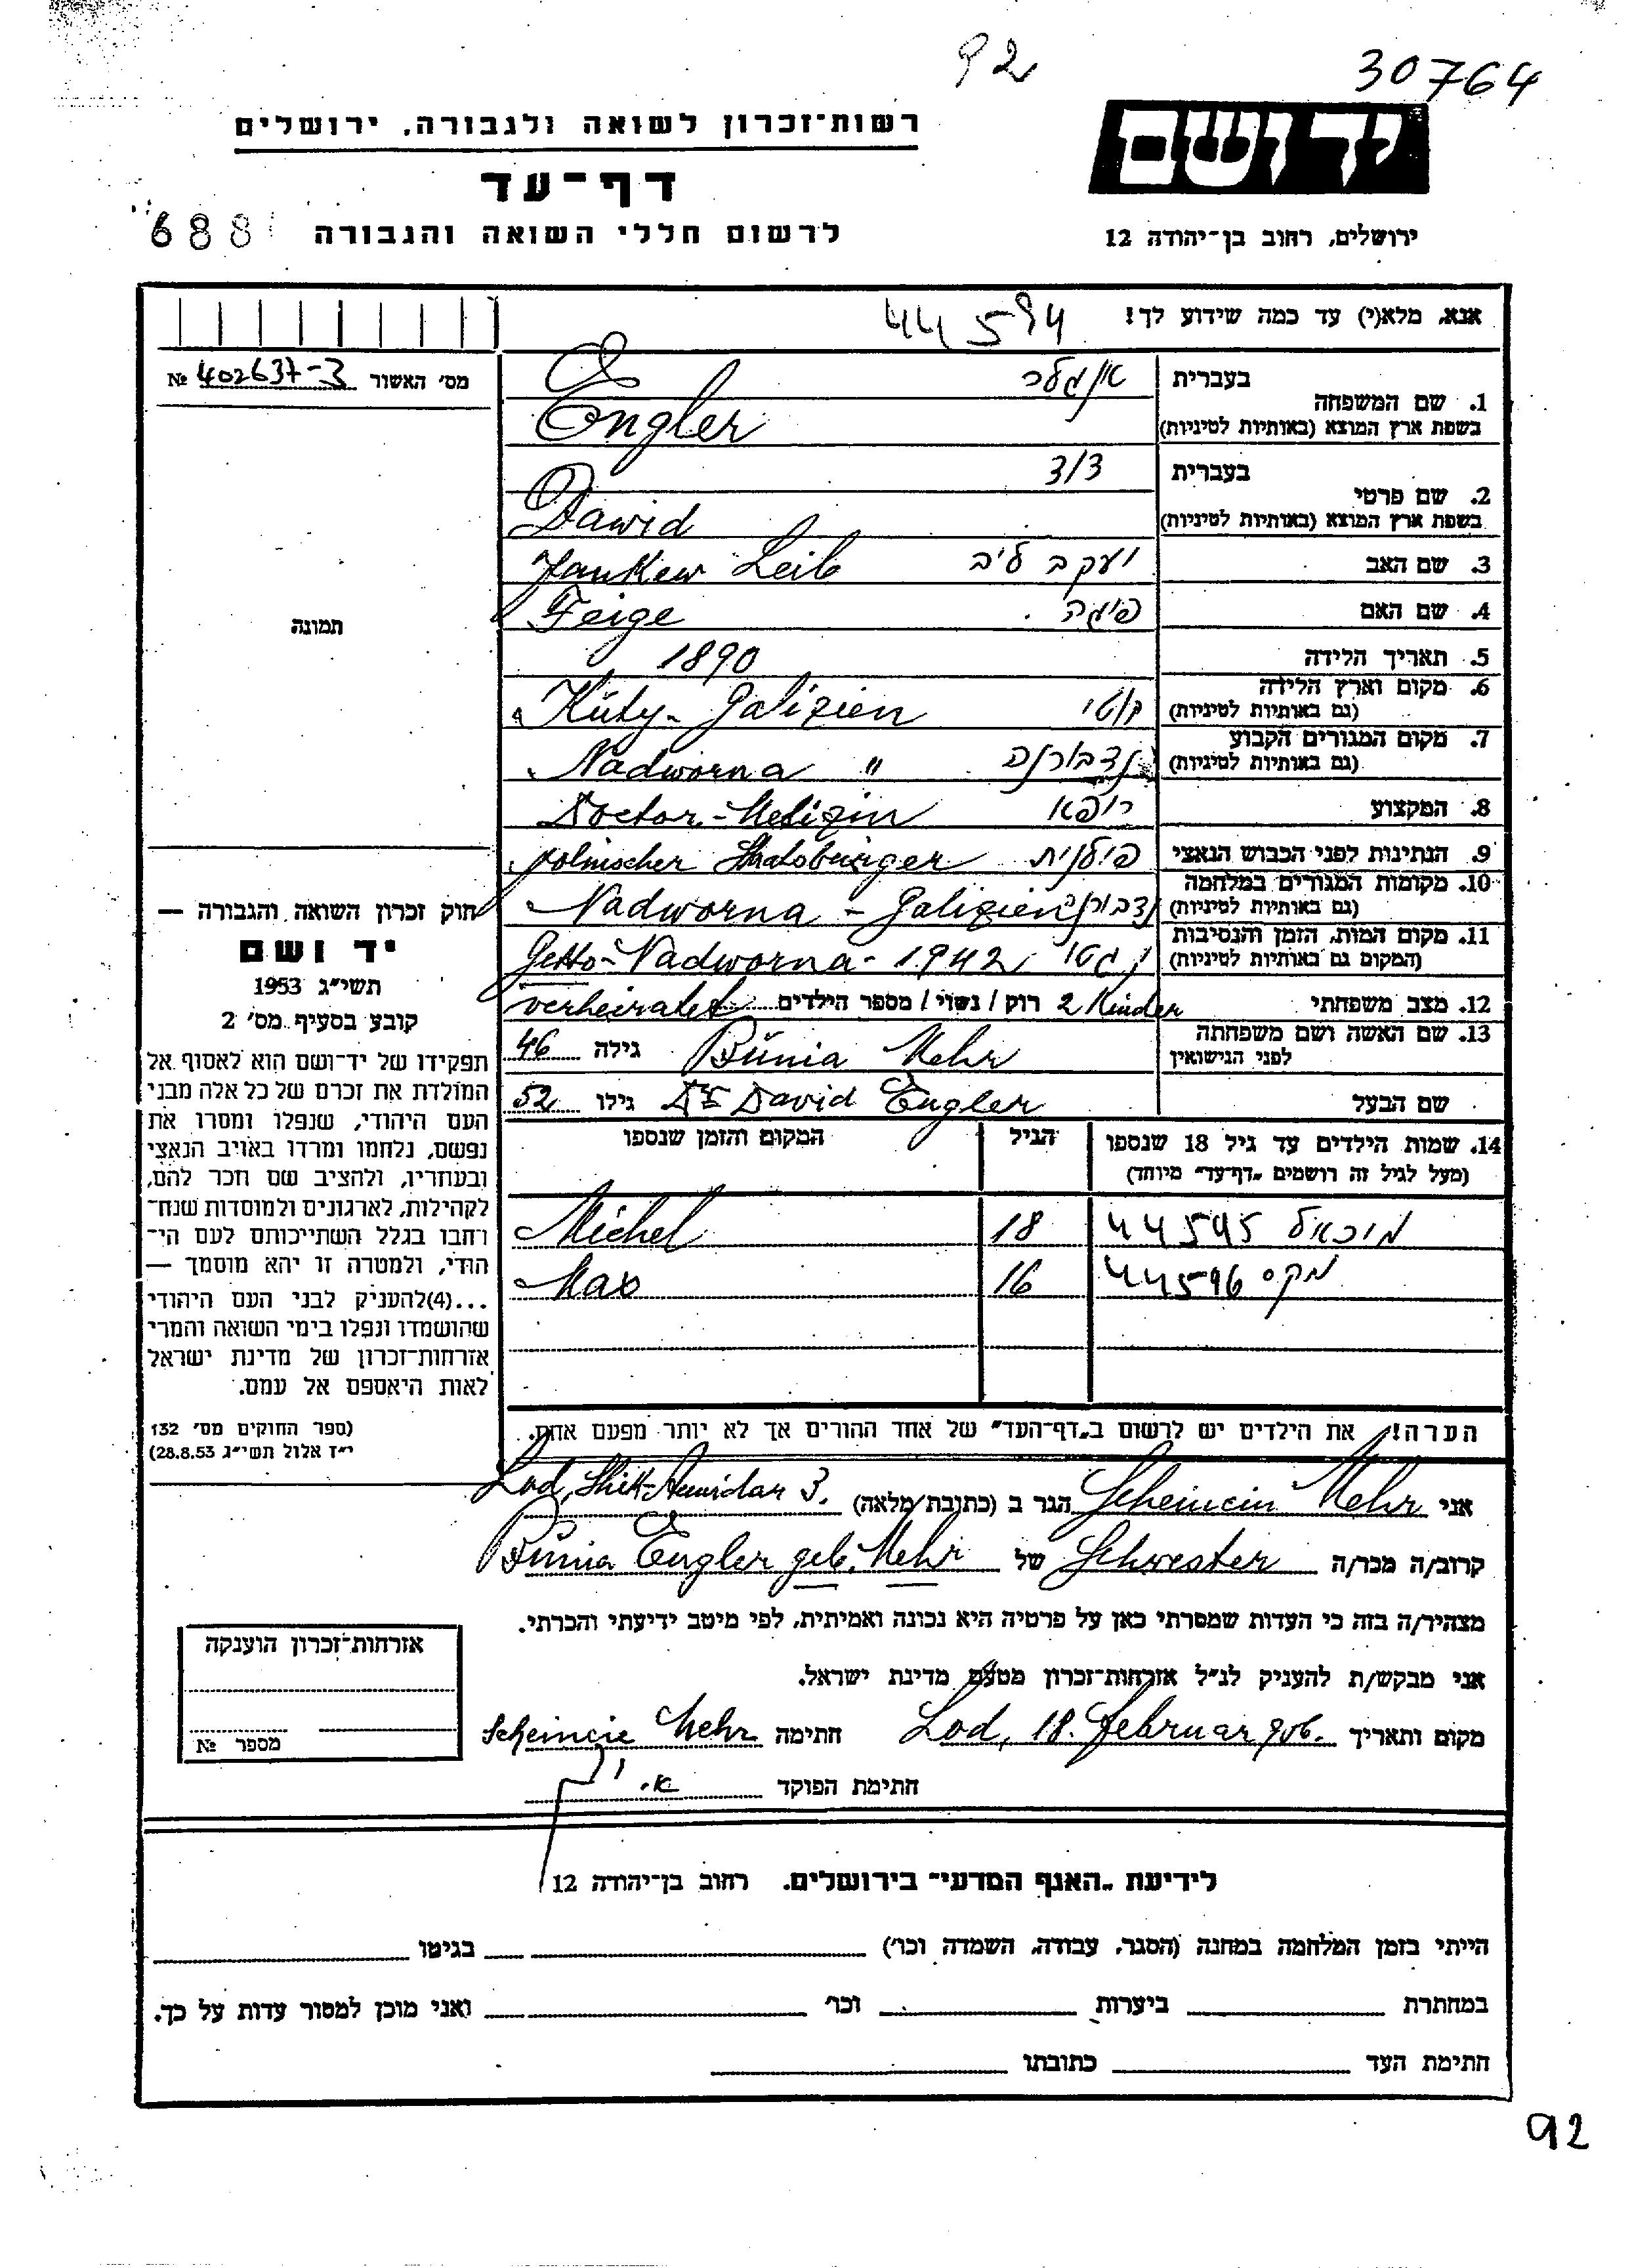 92
30764
יד ושם
ירושלים, רחוב בן־יהודה 12
רשות־זכרון לשואה ולגבורה, ירושלים
דף־עד
לרשום חללי השואה והגבורה
688
אנא, מלא(י) עד כמה שידוע לך!
44594
מס׳ האשור № 402637-3
תמונה
1. שם המשפחה בעברית אנגלר
בשפת ארץ המוצא (באותיות לטיניות) Engler
2. שם פרטי בעברית דוד
בשפת ארץ המוצא (באותיות לטיניות) Dawid
3. שם האב יעקב ליב Jankew Leib
4. שם האם פיגה Feige
5. תאריך הלידה 1890
6. מקום וארץ הלידה
(גם באותיות לטיניות) קוטי Kúty - Galizien
7. מקום המגורים הקבוע
(גם באותיות לטיניות) נדבורנה Nadworna "
8. המקצוע רופא Doctor - Medizin
9. הנתינות לפני הכבוש הנאצי פולנית polnischer Staatsbürger
10. מקומות המגורים במלחמה
(גם באותיות לטיניות) נדבורנה Nadworna - Galizien
11. מקום המות, הזמן והנסיבות
(המקום גם באותיות לטיניות) גטו Getto - Nadworna - 1942
12. מצב משפחתי רוק / נשוי / מספר הילדים 2 Kinder verheiratet
13. שם האשה ושם משפחתה
לפני הנישואין Búnia Mehr גילה 46
שם הבעל Dr David Engler גילו 52
14. שמות הילדים עד גיל 18 שנספו
(מעל לגיל זה רושמים „דף־עד״ מיוחד)
הגיל
המקום והזמן שנספו
מיכאל 44595 18 Michel
מקס 44596 16 Max
הערה! את הילדים יש לרשום ב„דף־העד״ של אחד ההורים אך לא יותר מפעם אחת.
חוק זכרון השואה והגבורה —
יד ושם
תשי״ג 1953
קובע בסעיף מס׳ 2
תפקידו של יד־ושם הוא לאסוף אל
המולדת את זכרם של כל אלה מבני
העם היהודי, שנפלו ומסרו את
נפשם, נלחמו ומרדו באויב הנאצי
ובעוזריו, ולהציב שם וזכר להם,
לקהילות, לארגונים ולמוסדות שנח־
רחבו בגלל השתייכותם לעם הי־
הודי, ולמטרה זו יהא מוסמך —
...(4)להעניק לבני העם היהודי
שהושמדו ונפלו בימי השואה והמרי
אזרחות־זכרון של מדינת ישראל
לאות היאספם אל עמם.
(ספר החוקים מס׳ 132
י״ז אלול תשי״ג 28.8.53)
אני Scheincie Mehr הגר ב (כתובת מלאה) Lod, Shik-Amidar 3.
קרוב/ה מכר/ה Schwester של Búnia Engler geb. Mehr
מצהיר/ה בזה כי העדות שמסרתי כאן על פרטיה היא נכונה ואמיתית, לפי מיטב ידיעתי והכרתי.
אני מבקש/ת להעניק לנ״ל אזרחות־זכרון מטעם מדינת ישראל.
מקום ותאריך Lod, 18. Februar חתימה Scheincie Mehr
חתימת הפוקד
אזרחות־זכרון הוענקה
מספר №
לידיעת „האגף המדעי״ בירושלים. רחוב בן־יהודה 12
הייתי בזמן המלחמה במחנה (הסגר, עבודה, השמדה וכו׳) בגיטו
במחתרת ביערות וכו׳ ואני מוכן למסור עדות על כך.
חתימת העד כתובתו
92